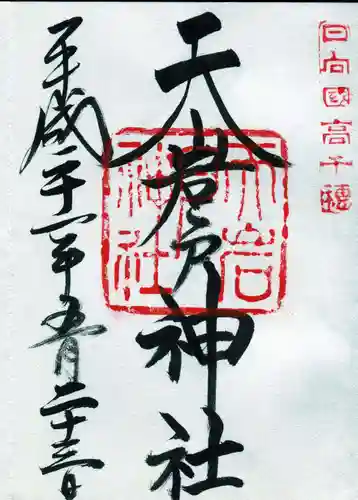 日向國高千穗
天岩戸神社
天岩神社
平成二十一年五月二十三日